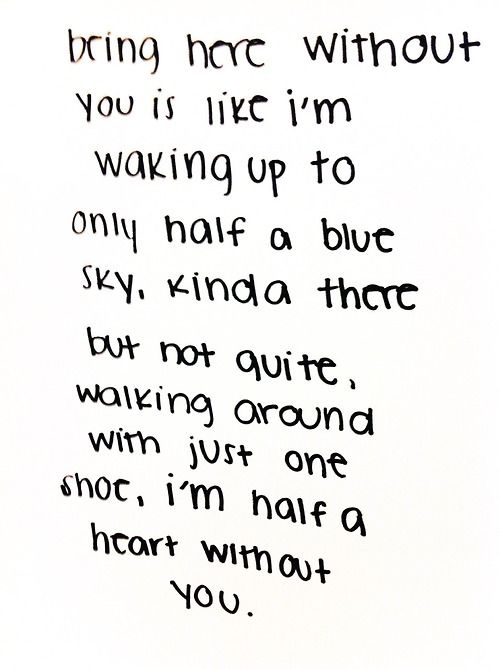 being here without
you is like i'm
waking up to
only half a blue
sky, kinda there
but not quite,
walking around
with just one
shoe, i'm half a
heart without
you.